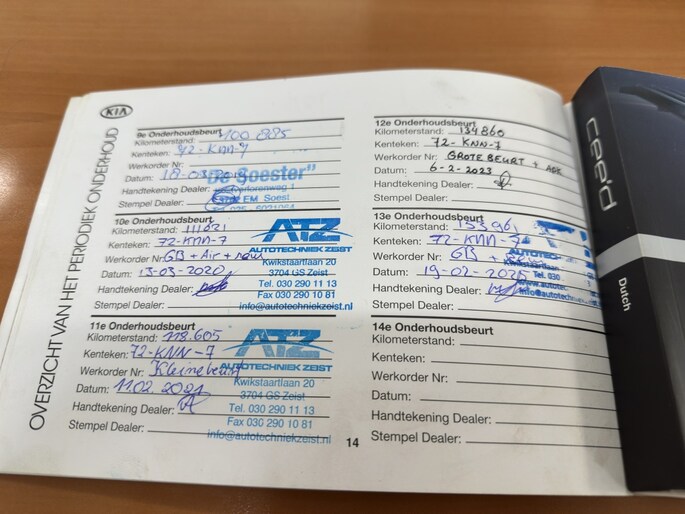 KIA
OVERZICHT VAN HET PERIODIEK ONDERHOUD
9e Onderhoudsbeurt
Kilometerstand: 100 885
Kenteken: 72-KNN-7
Werkorder Nr:
Datum:
De Soester"
Handtekening Dealer:
EM Soest
Stempel Dealer:
10e Onderhoudsbeurt
Kilometerstand: 111621
Kenteken: 72-KNN-7
Werkorder Nr: GB + Air +
Datum: 13-03-2020
Handtekening Dealer:
Stempel Dealer:
ATZ
AUTOTECHNIEK ZEIST
Kwikstaartlaan 20
3704 GS Zeist
Tel. 030 290 11 13
Fax 030 290 10 81
info@autotechniekzeist.nl
11e Onderhoudsbeurt
Kilometerstand: 118.605
Kenteken: 72-KNN-7
Werkorder Nr: Kleine beurt
Datum: 11.02.2021
Handtekening Dealer:
Stempel Dealer:
ATZ
AUTOTECHNIEK ZEIST
Kwikstaartlaan 20
3704 GS Zeist
Tel. 030 290 11 13
Fax 030 290 10 81
info@autotechniekzeist.nl
12e Onderhoudsbeurt
Kilometerstand: 134860
Kenteken: 72-KNN-7
Werkorder Nr: GROTE BEURT + APK
Datum: 6-2-2023
Handtekening Dealer:
Stempel Dealer:
13e Onderhoudsbeurt
Kilometerstand: 153961
Kenteken: 72-KNN-7
Werkorder Nr: GB
Datum: 19-02-2025
Handtekening Dealer:
Stempel Dealer:
AUTOTECH
Kwikstaartlaan
14e Onderhoudsbeurt
Kilometerstand:
Kenteken:
Werkorder Nr:
Datum:
Handtekening Dealer:
Stempel Dealer:
14
cee'd
Dutch